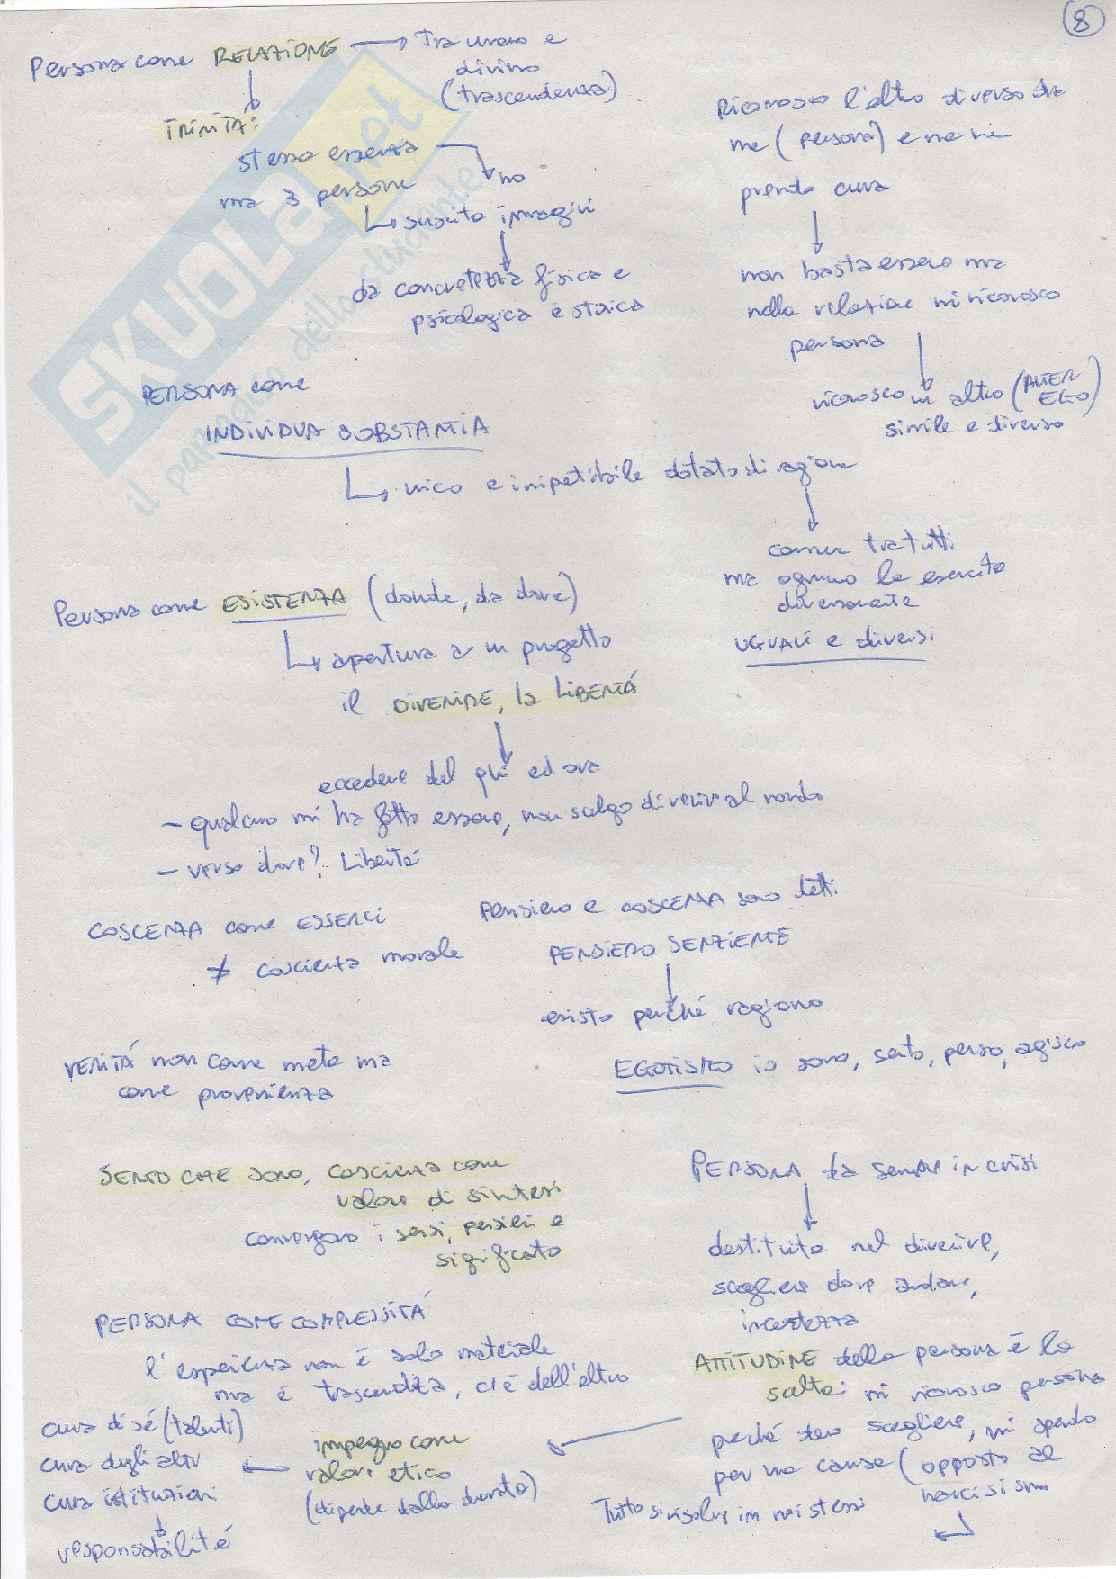 8
Persona come RELAZIONE → Tra umano e
divino
(trascendenza)
TRINITÁ:
stessa essenza
ma 3 persone
no
suscito immagini
da concretezza fisica e
psicologica e storica
Riconosco l'altro diverso da
me (persona) e me ne
prendo cura
non basta essere ma
nella relazione mi riconosco
persona
riconosco un altro (ALTER
EGO)
simile e diverso
PERSONA come
INDIVIDUA SUBSTANTIA
unico e irripetibile dotato di ragione
comune tra tutti
ma ognuno la esercita
diversamente
UGUALI e diversi
Persona come ESISTENZA (donde, da dove)
apertura a un progetto
il DIVENIRE, la LIBERTÁ
eccedere del qui ed ora
- qualcuno mi ha fatto essere, non scelgo di venire al mondo
- verso dove? Libertá
COSCENZA come ESSERCI
≠ coscienza morale
PENSIERO e COSCENZA sono
PENSIERO SENZIENTE
esisto perché ragiono
EGOTISMO io sono, sento, penso, agisco
VERITÁ non come meta ma
come provenienza
SENTO CHE SONO, coscienza come
valore di sintesi
convergono i sensi, pensieri e
significato
PERSONA sta sempre in crisi
destituito nel divenire,
scegliere dove andare,
incertezza
PERSONA COME COMPLESSITÁ
l'esperienza non è solo materiale
ma è trascendita, c'è dell'altro
ATTITUDINE della persona è la
scelta: mi riconosco persona
perché devo scegliere, mi spendo
per una causa (opposto al
narcisismo
cura di sé (talenti)
cura degli altri
cura istituzioni
responsabilitá
impegno come
valore etico
(dipende dalla durata)
Tutto si risolve in noi stessi
SKUOLA.net
il paradiso dello studente